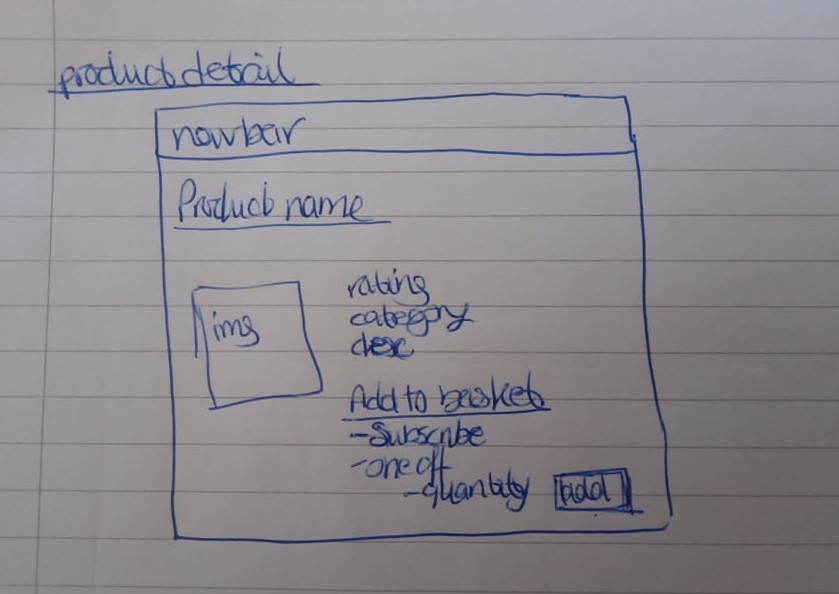 product detail
navbar
Product name
img
rating
category
desc
Add to basket
-Subscribe
-one off
-quantity add